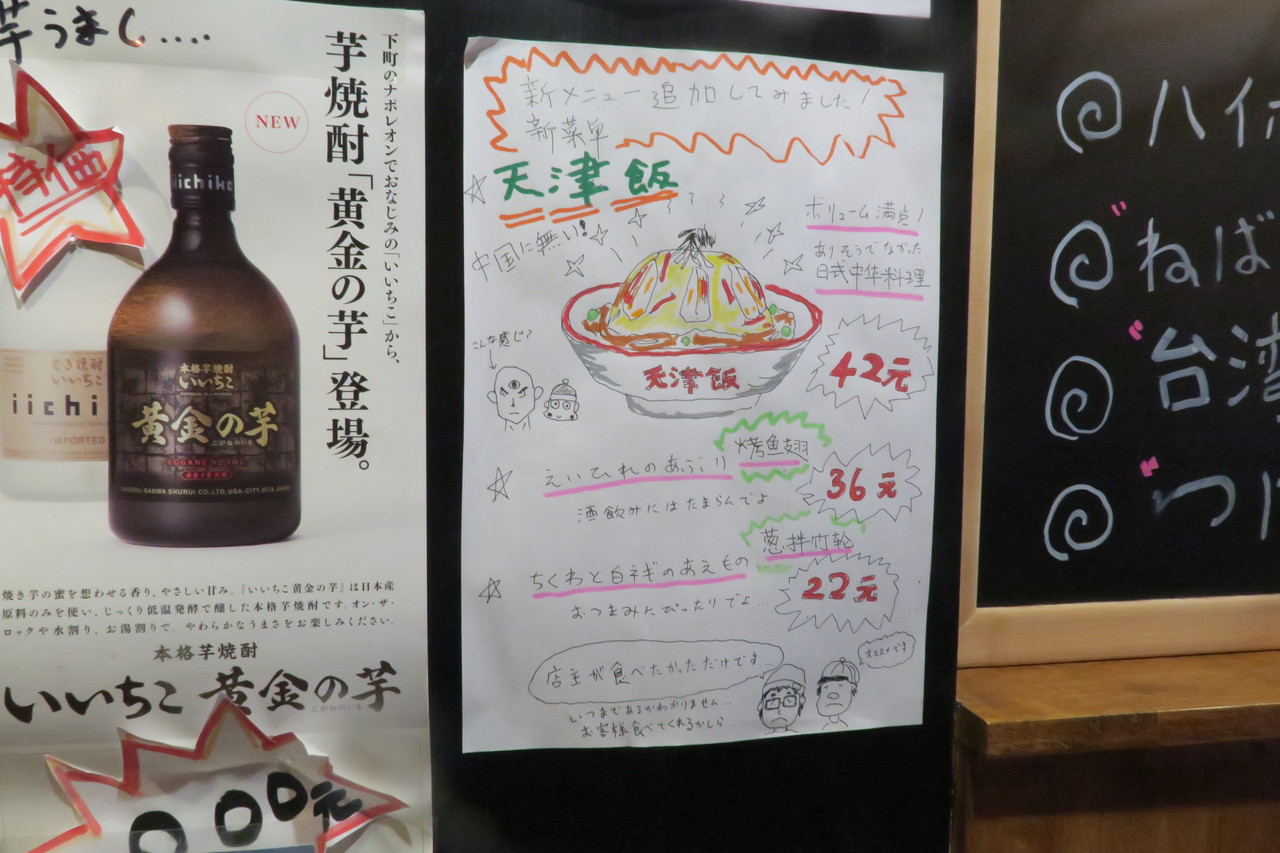 芋うまし....
特価
下町のナポレオンでおなじみの「いいちこ」から、
芋焼酎「黄金の芋」登場。
NEW
iichiko
むぎ焼酎
いいちこ
iichi
IMPORTED
本格芋焼酎
いいちこ
黄金の芋
こがねのいも
KOGANE NO IMO
SANWA SHURUI CO.,LTD. USA-CITY, OITA, JAPAN
焼き芋の蜜を想わせる香り、やさしい甘み。『いいちこ黄金の芋』は日本産
原料のみを使い、じっくり低温発酵で醸した本格芋焼酎です。オン・ザ・
ロックや水割り、お湯割りで、やわらかなうまさをお楽しみください。
本格芋焼酎
いいちこ 黄金の芋
こがねのいも
元
新メニュー追加してみました!
新菜単
天津飯
中国に無い!
ボリューム満点!
ありそうでなかった
日式中华料理
こんな感じ?
天津飯
42元
えいひれのあぶり
烤鱼翅
36元
酒飲みにはたまらんでよ...
ちくわと白ネギのあえもの
葱拌竹轮
22元
おつまみにぴったりでよ...
店主が食べたかっただけです...
オススメです
いつまであるかわかりません...
お客様食べてくれるかしら...
ハイ
ねば
台湾
つ